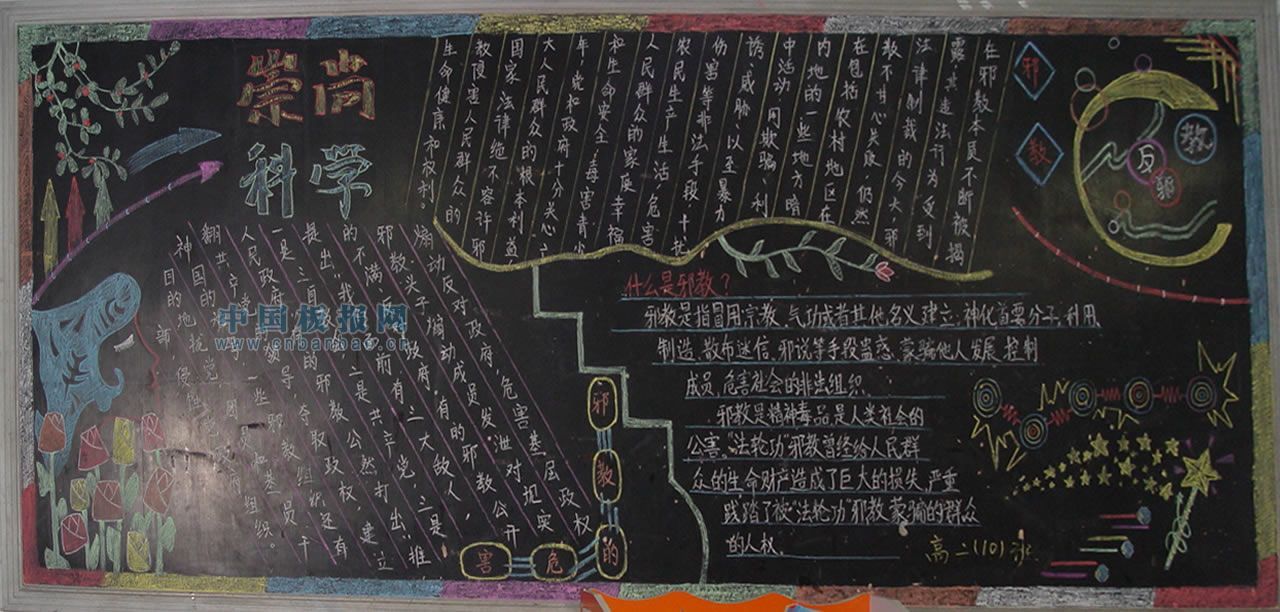 崇尚
科学
邪
教
反邪
教
在邪教本质不断被揭
露,其违法行为受到
法律制裁的今天,邪
教不甘心失败,仍然
在包括农村地区在
内地的一些地方暗
中活动,用欺骗、利
诱、威胁、以至暴力
伤害等非法手段,干扰
农民生产 生活,危害
人民群众的家庭幸福
和生命安全,毒害青少
年,党和政府十分关心广
大人民群众的根本利益
国家法律绝不容许邪
教侵害人民群众的
生命健康和权利
煽动反对政府,危害基层政权
邪教头子煽动成员发泄对现实
的不满
有的邪教公开
提出"我
前有三大敌人,
一是
政府,二是共产党,三是
三自
的邪教公然打出"推
翻共产
领导,夺取政权,建立
神国的
一些邪教组织还有
目的地
侵蚀
党员和基
员、干
部
组织。
邪教的危害
什么是邪教?
邪教是指冒用宗教、气功或者其他名义建立,神化首要分子,利用
制造、散布迷信、邪说等手段蛊惑、蒙骗他人发展、控制
成员,危害社会的非法组织.
邪教是精神毒品,是人类社会的
公害。"法轮功"邪教曾经给人民群
众的生命财产造成了巨大的损失,严重
践踏了被"法轮功"邪教蒙骗的群众
的人权.
高二(10)
中国板报网
www.cnbanbao.cn